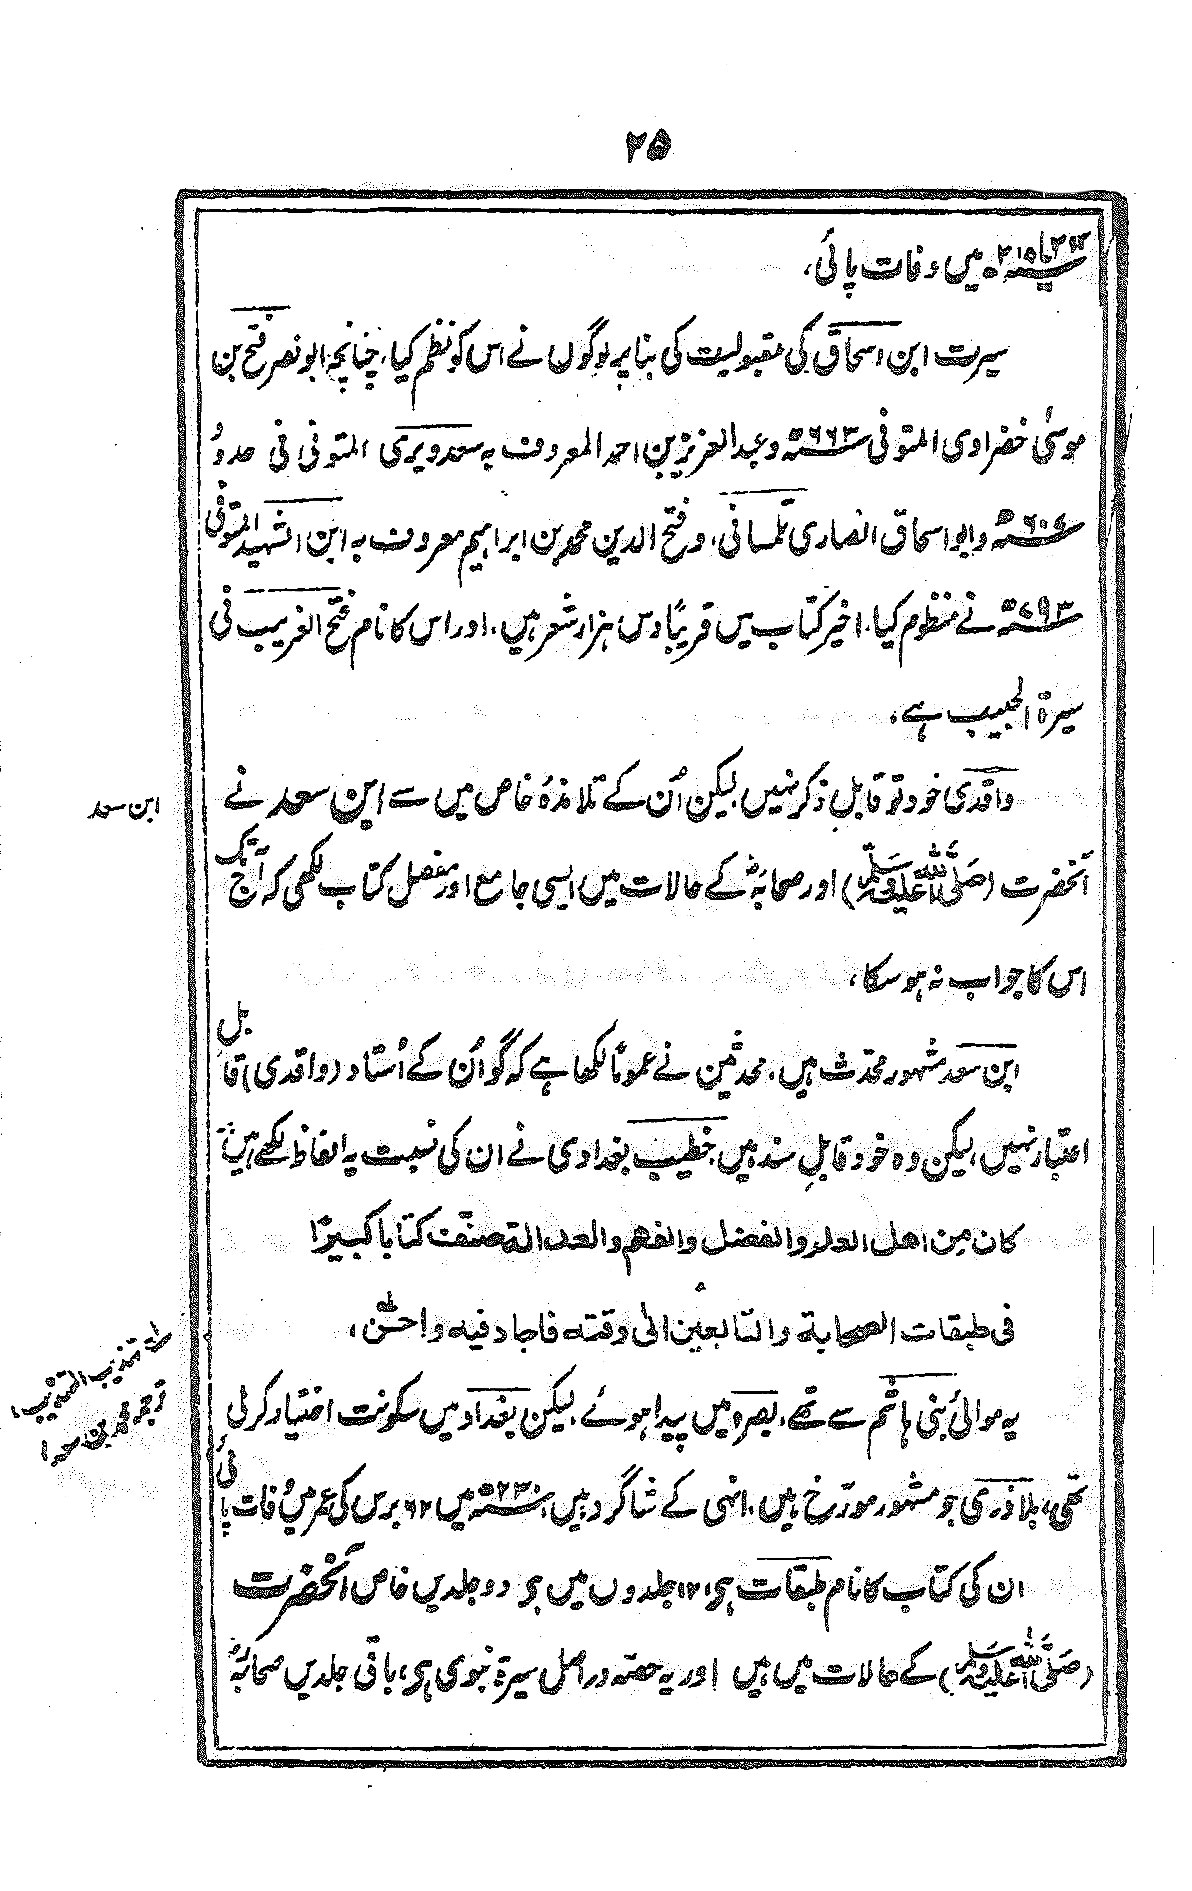 ۲۵
۲۱۳ یا ۲۱۵ ؁ھ میں وفات پائی،
سیرت ابن اسحاق کی مقبولیت کی بنا پر لوگوں نے اس کو نظم کیا، چنانچہ ابو نصر فتح بن
موسیٰ خضراوی المتوفی ۶۶۳ ؁ھ وعبدالعزیز بن احمد المعروف بہ سعد ویری المتوفی فی حدود
۶۰۷ ؁ھ وابو اسحاق انصاری تلمسانی، و فتح الدین محمد بن ابراہیم معروف بہ ابن الشہید المتوفی
۷۹۳ ؁ھ نے منظوم کیا، اخیر کتاب میں قریباً دس ہزار شعر ہیں، اور اس کا نام فتح الغریب فی
سیرۃ الحبیب ہے،
واقدی خود تو قابلِ ذکر نہیں، لیکن اُن کے تلامذۂ خاص میں سے ابن سعد نے
ابن سعد
آنحضرت (صَلَّی اللہُ عَلَیْہِ وَسَلَّم) اور صحابہؓ کے حالات میں ایسی جامع اور مفصل کتاب لکھی کہ آج تک
اس کا جواب نہ ہو سکا،
ابن سعد مشہور محدّث ہیں، محدثین نے عموماً لکھا ہے کہ گو اُن کے اُستاد (واقدی) قابل
اعتبار نہیں، لیکن وہ خود قابلِ سند ہیں، خطیب بغدادی نے ان کی نسبت یہ الفاظ لکھے ہیں:
کان من اهل العلم والفضل والفهم والعدالة صنّف کتابا کبیرًا
فی طبقات الصحابة والتابعین الیٰ وقته فاجاد فیه واحسن،
لہ تہذیب التہذیب،
ترجمہ محمد بن سعد
یہ موالیٔ بنی ہاشم سے تھے، بصرہ میں پیدا ہوئے، لیکن بغداد میں سکونت اختیار کر لی
تھی، بلاذری جو مشہور مورّخ ہیں، انہی کے شاگرد ہیں، ۲۳۰ ؁ھ میں ۶۲ برس کی عمر میں وفات پائی
ان کی کتاب کا نام طبقات ہی، ۱۲ جلدوں میں ہی دو جلدیں خاص آنحضرت
(صَلَّی اللہُ عَلَیْہِ وَسَلَّم) کے حالات میں ہیں اور یہ حصّہ دراصل سیرۃ نبوی ہی، باقی جلدیں صحابہؓ